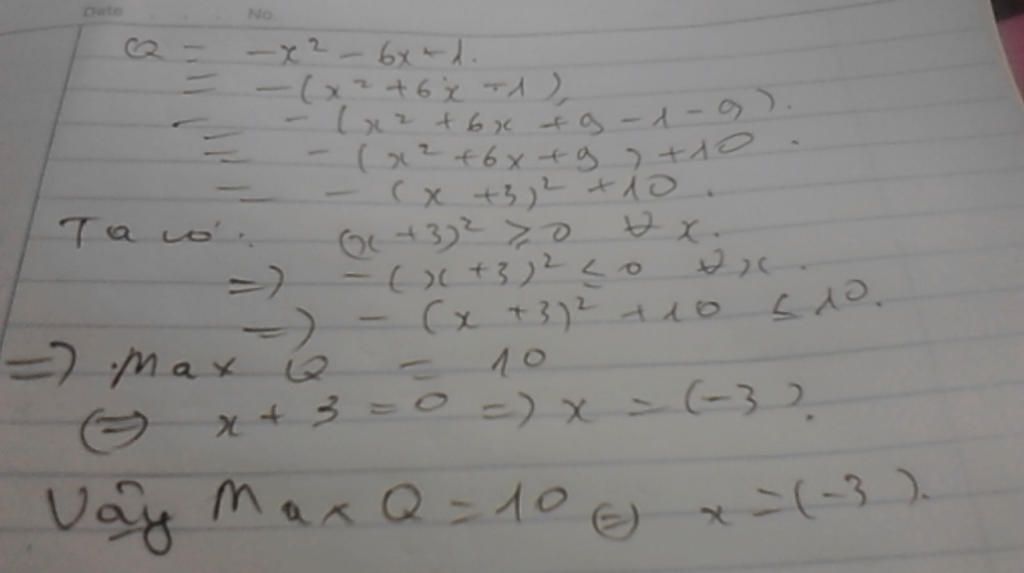 Date No.
Q = -x² - 6x + 1.
= -(x² + 6x - 1).
= -(x² + 6x + 9 - 1 - 9).
= -(x² + 6x + 9) + 10.
= -(x + 3)² + 10.
Ta có: (x + 3)² ≥ 0 ∀ x.
=> -(x + 3)² ≤ 0 ∀ x.
=> -(x + 3)² + 10 ≤ 10.
=> Max Q = 10
<=> x + 3 = 0 => x = (-3).
Vậy Max Q = 10 <=> x = (-3).